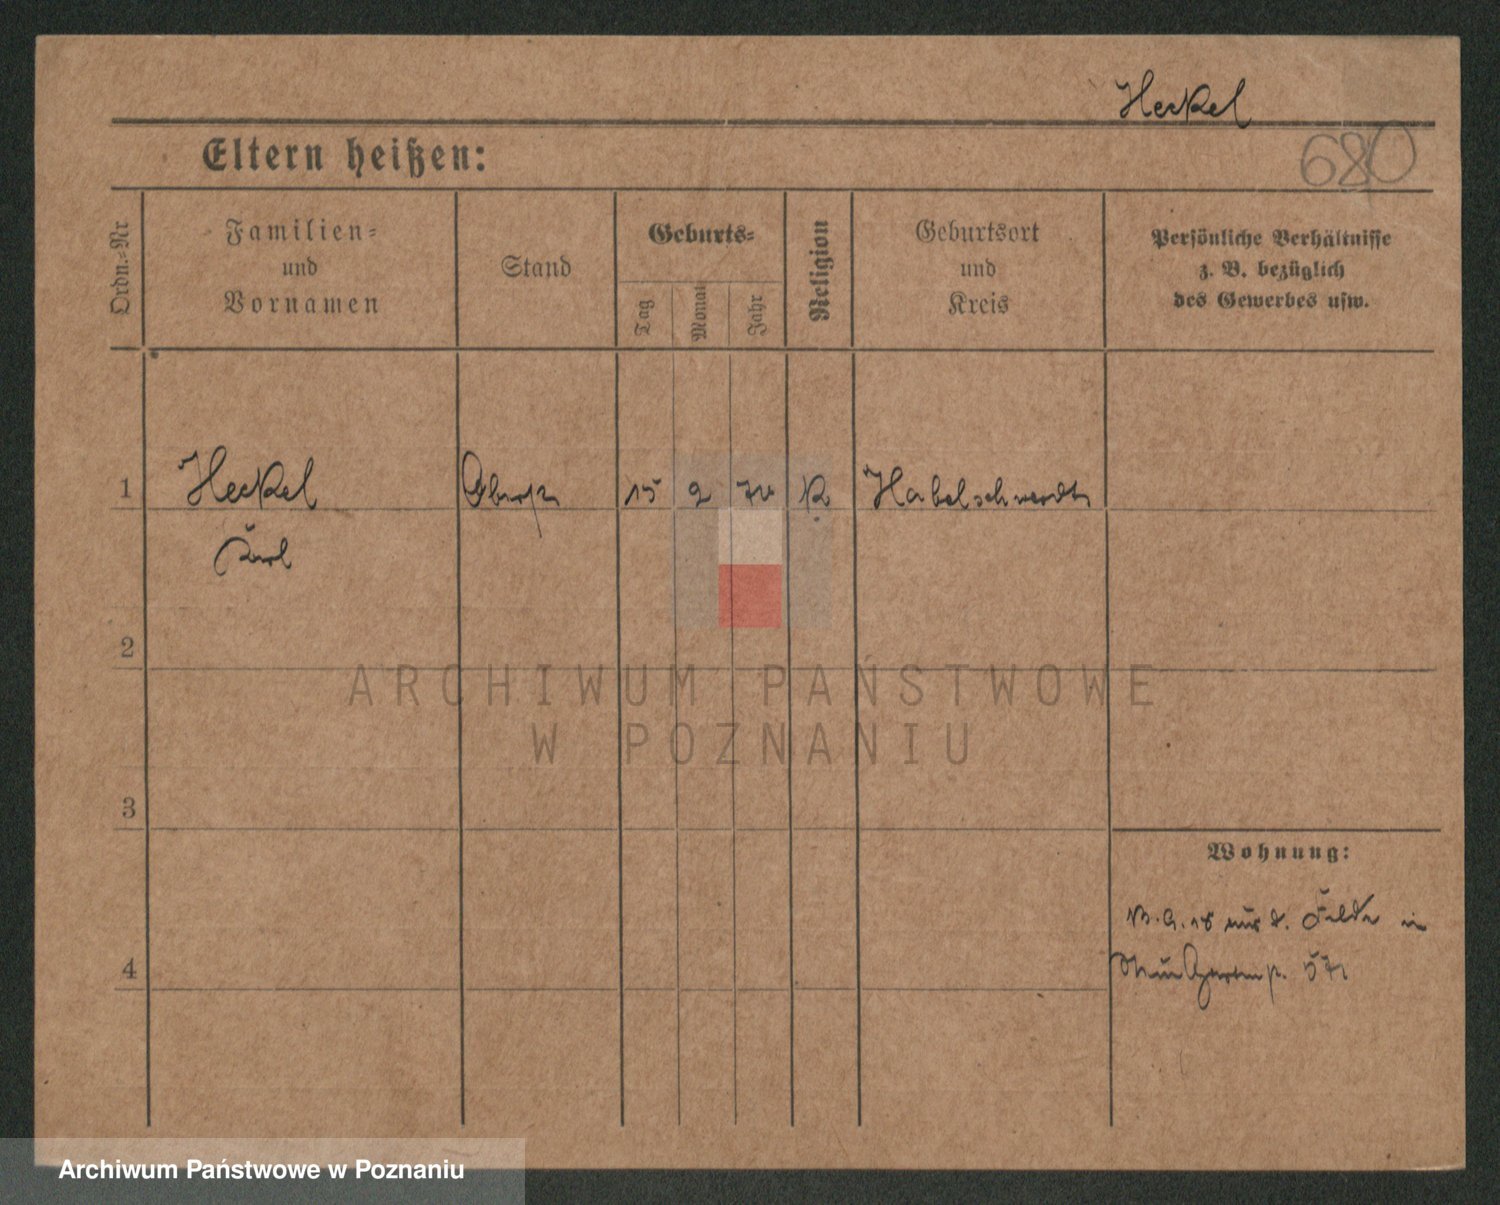 Heckel
Eltern heißen:
680
Ordn.-Nr
Familien-
und
Vornamen
Stand
Geburts-
Tag
Monat
Jahr
Religion
Geburtsort
und
Kreis
Persönliche Verhältnisse
z. B. bezüglich
des Gewerbes usw.
1 Heckel 15 2 K Habelschwerdt
Karl
2
3
4
Wohnung:
18 aus d. Felde in
571
ARCHIWUM PAŃSTWOWE
W POZNANIU
Archiwum Państwowe w Poznaniu